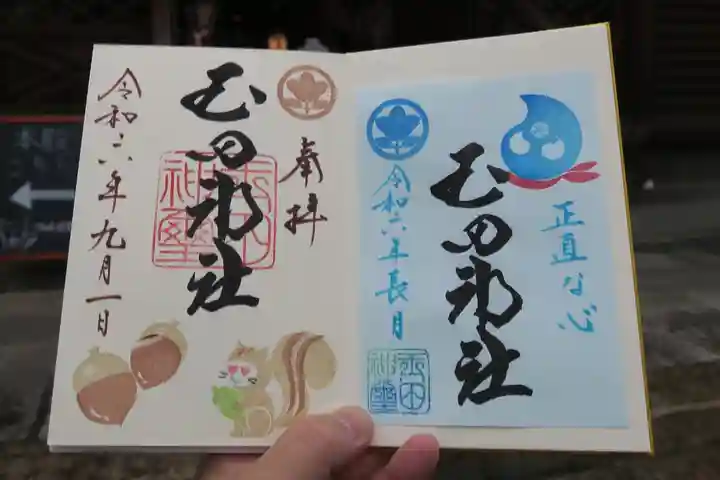 奉拝
玉田神社
玉田神璽
令和六年九月一日
正直な心
玉田神社
令和六年長月
玉田神璽